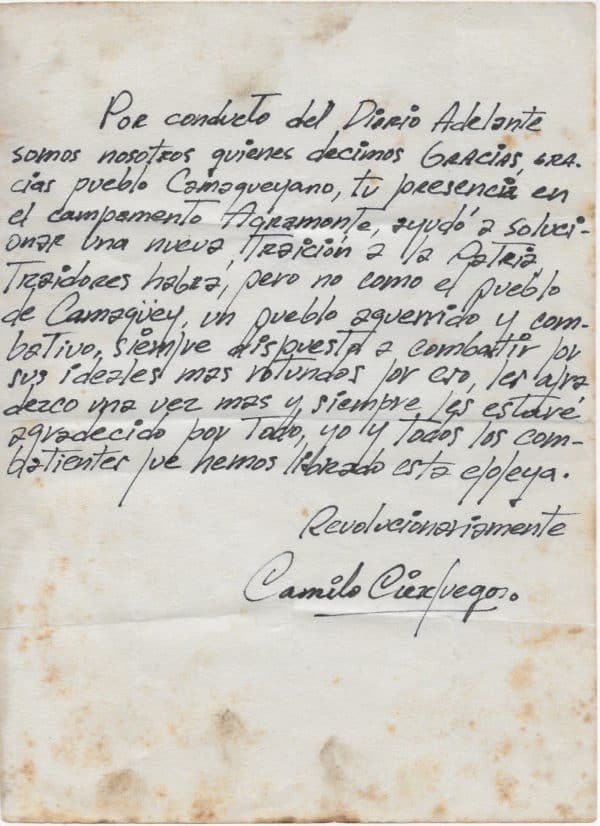 Por conducto del Diario Adelante
somos nosotros quienes decimos GRACIAS, GRA-
cias pueblo Camagueyano, tu presencia en
el campamento Agramonte, ayudó a soluci-
onar una nueva, traición a la Patria
traidores habrá, pero no como el pueblo
de Camagüey, un pueblo aguerrido y com-
bativo, siempre dispuesto a combatir por
sus ideales mas rotundos por eso, les agra
dezco una vez mas y, siempre les estaré
agradecido por todo, yo y todos los com-
batientes que hemos librado esta epopeya.
Revolucionariamente
Camilo Cienfuegos.